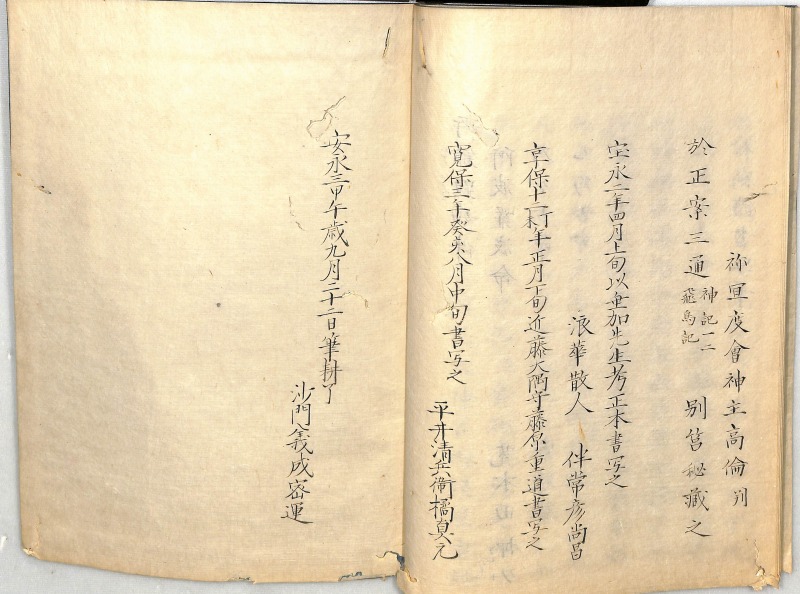 祢宜度會神主高倫判
於正案三通 神記二 飛鳥記 別筥秘蔵之
宝永二年四月上旬以垂加先生考正本書写之
浪華散人 伴常彦尚昌
享保十二年正月上旬近藤大隅守藤原重道書写之
寛保三年癸亥八月中旬書写之
平井清兵衛橘貞元
安永三甲午歳九月二十二日筆耕了
沙門義成密運